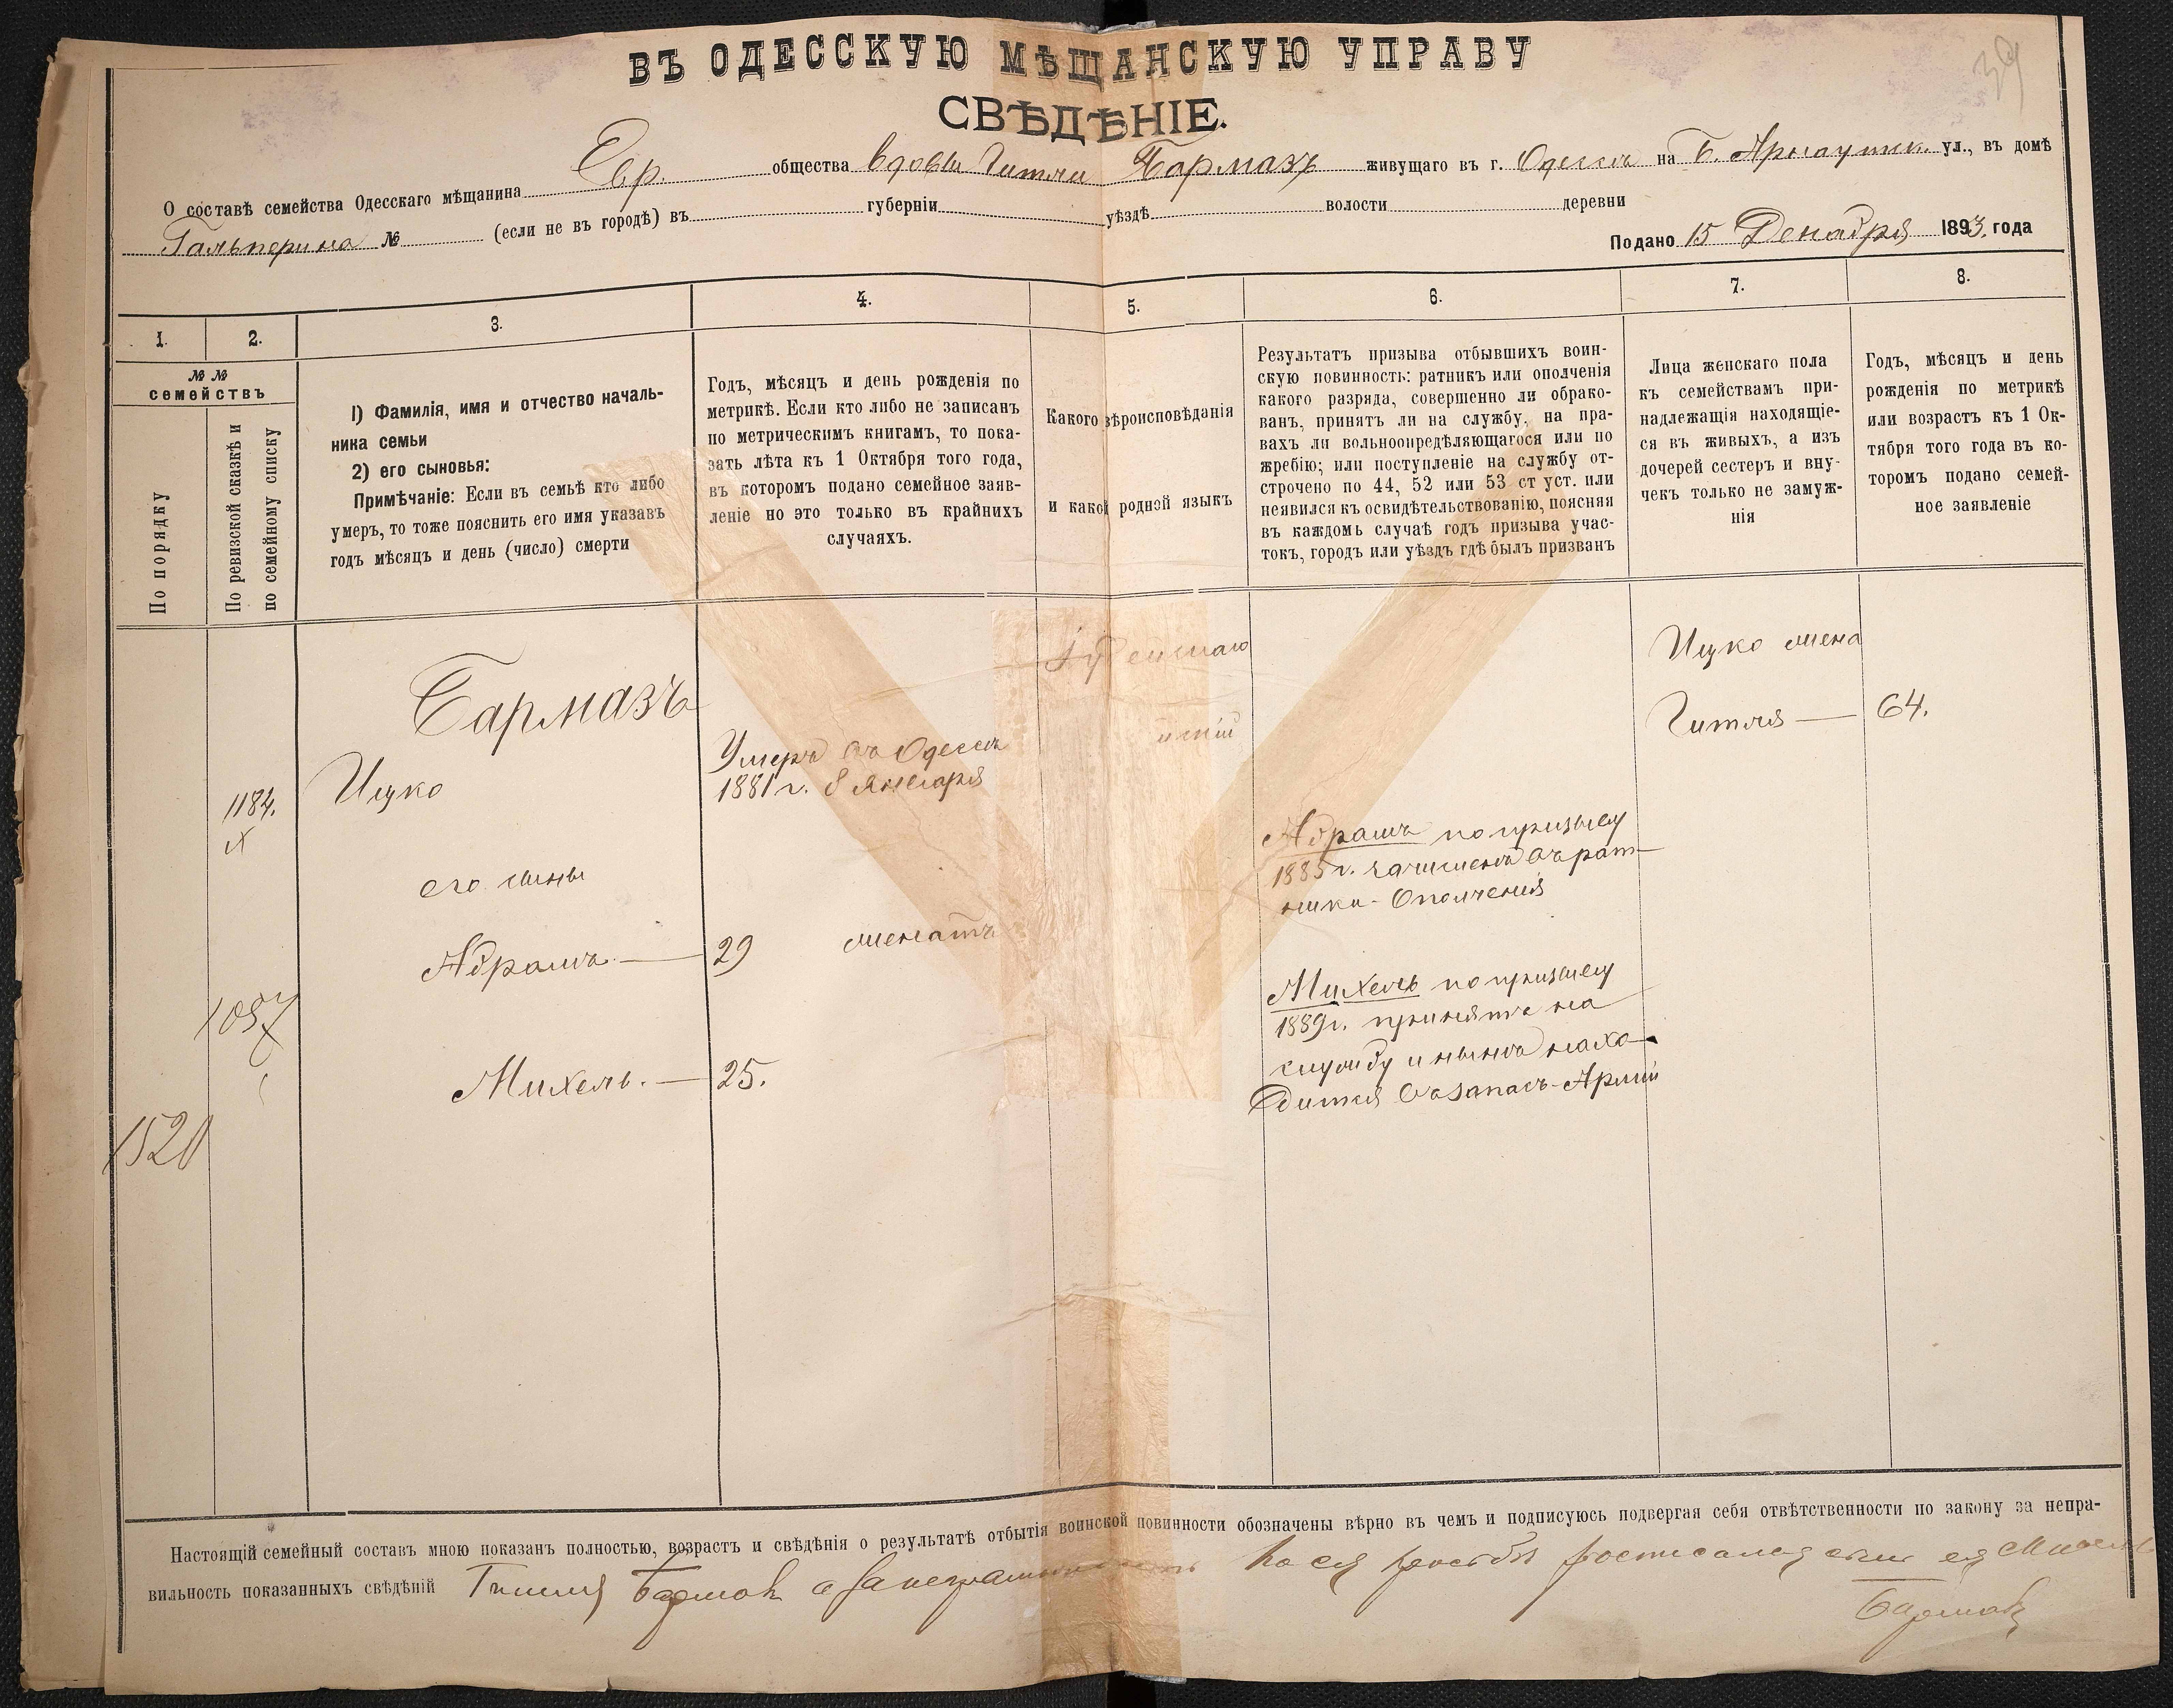 39
ВЪ ОДЕССКУЮ МѢЩАНСКУЮ УПРАВУ
СВѢДѢНІЕ.
О составѣ семейства Одесскаго мѣщанина Евр. общества вдовы Гитли Бармазъ живущаго въ г. Одессѣ на Б. Арнаутск. ул., въ домѣ
Гальперина № (если не въ городѣ) въ губерніи уѣздѣ волости деревни
Подано 15 Декабря 1893. года
1.
2.
3.
4.
5.
6.
7.
8.
№ №
семействъ
По порядку
По ревизской сказкѣ и
по семейному списку
I) Фамилія, имя и отчество началь-
ника семьи
2) его сыновья:
Примѣчаніе: Если въ семьѣ кто либо
умеръ, то тоже пояснить его имя указавъ
годъ мѣсяцъ и день (число) смерти
Годъ, мѣсяцъ и день рожденія по
метрикѣ. Если кто либо не записанъ
по метрическимъ книгамъ, то пока-
зать лѣта къ 1 Октября того года,
въ которомъ подано семейное заяв-
леніе но это только въ крайнихъ
случаяхъ.
Какого вѣроисповѣданія
и какой родной языкъ
Результатъ призыва отбывшихъ воин-
скую повинность: ратникъ или ополченія
какого разряда, совершенно ли обрако-
ванъ, принятъ ли на службу, на пра-
вахъ ли вольноопредѣляющагося или по
жребію; или поступленіе на службу от-
строчено по 44, 52 или 53 ст уст. или
неявился къ освидѣтельствованію, поясняя
въ каждомъ случаѣ годъ призыва учас-
токъ, городъ или уѣздъ гдѣ былъ призванъ
Лица женскаго пола
къ семействамъ при-
надлежащія находящіе-
ся въ живыхъ, а изъ
дочерей сестеръ и вну-
чекъ только не замуж-
нія
Годъ, мѣсяцъ и день
рожденія по метрикѣ
или возрастъ къ 1 Ок-
тября того года въ ко-
торомъ подано семей-
ное заявленіе
Іудейскаго
Бармазъ
Ицко жена
Гитля — 64.
1184.
Ицко
Умеръ въ Одессѣ
1881 г. 8 января
его сыны
Абрамъ по призыву
1885 г. зачисленъ въ рат-
ники Ополченія
Абрамъ — 29 женатъ
1057
Михель по призыву
1889 г. принятъ на
службу и нынѣ нахо-
дится въ запасѣ Арміи
Михель. — 25.
1520
Настоящій семейный составъ мною показанъ полностью, возрастъ и свѣдѣнія о результатѣ отбытія воинской повинности обозначены вѣрно въ чемъ и подписуюсь подвергая себя отвѣтственности по закону за непра-
вильность показанныхъ свѣдѣній Гитля Бармаз а за неграмотность по ея просьбы росписался сынъ ея Михель
Бармаз